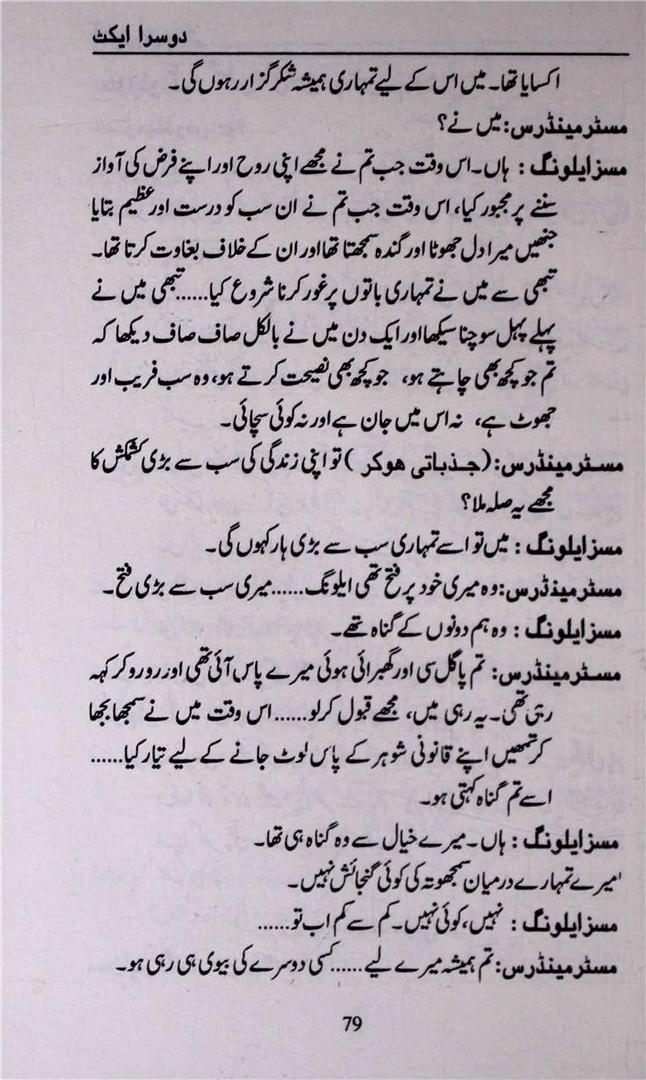 دوسرا ایکٹ
اکسایا تھا۔ میں اس کے لیے تمہاری ہمیشہ شکر گزار رہوں گی۔
مسٹر مینڈرس: میں نے؟
مسز ایلونگ : ہاں۔ اس وقت جب تم نے مجھے اپنی روح اور اپنے فرض کی آواز
سننے پر مجبور کیا، اس وقت جب تم نے ان سب کو درست اور عظیم بتایا
جنھیں میرا دل جھوٹا اور گندہ سمجھتا تھا اور ان کے خلاف بغاوت کرتا تھا۔
تبھی سے میں نے تمہاری باتوں پر غور کرنا شروع کیا......تبھی میں نے
پہلے پہل سوچنا سیکھا اور ایک دن میں نے بالکل صاف صاف دیکھا کہ
تم جو کچھ بھی چاہتے ہو، جو کچھ بھی نصیحت کرتے ہو، وہ سب فریب اور
جھوٹ ہے، نہ اس میں جان ہے اور نہ کوئی سچائی۔
مسٹر مینڈرس: (جذباتی ہوکر) تو اپنی زندگی کی سب سے بڑی کشمکش کا
مجھے یہ صلہ ملا؟
مسز ایلونگ : میں تو اسے تمہاری سب سے بڑی ہار کہوں گی۔
مسٹر مینڈرس: وہ میری خود پر فتح تھی ایلونگ......میری سب سے بڑی فتح۔
مسز ایلونگ : وہ ہم دونوں کے گناہ تھے۔
مسٹر مینڈرس: تم پاگل سی اور گھبرائی ہوئی میرے پاس آئی تھی اور رو رو کر کہہ
رہی تھی۔ یہ رہی میں، مجھے قبول کرلو......اس وقت میں نے سمجھا بجھا
کر تمھیں اپنے قانونی شوہر کے پاس لوٹ جانے کے لیے تیار کیا......
اسے تم گناہ کہتی ہو۔
مسز ایلونگ : ہاں۔ میرے خیال سے وہ گناہ ہی تھا۔
میرے تمہارے درمیان سمجھوتہ کی کوئی گنجائش نہیں۔
مسز ایلونگ : نہیں، کوئی نہیں۔ کم سے کم اب تو......
مسٹر مینڈرس: تم ہمیشہ میرے لیے......کسی دوسرے کی بیوی ہی رہی ہو۔
79